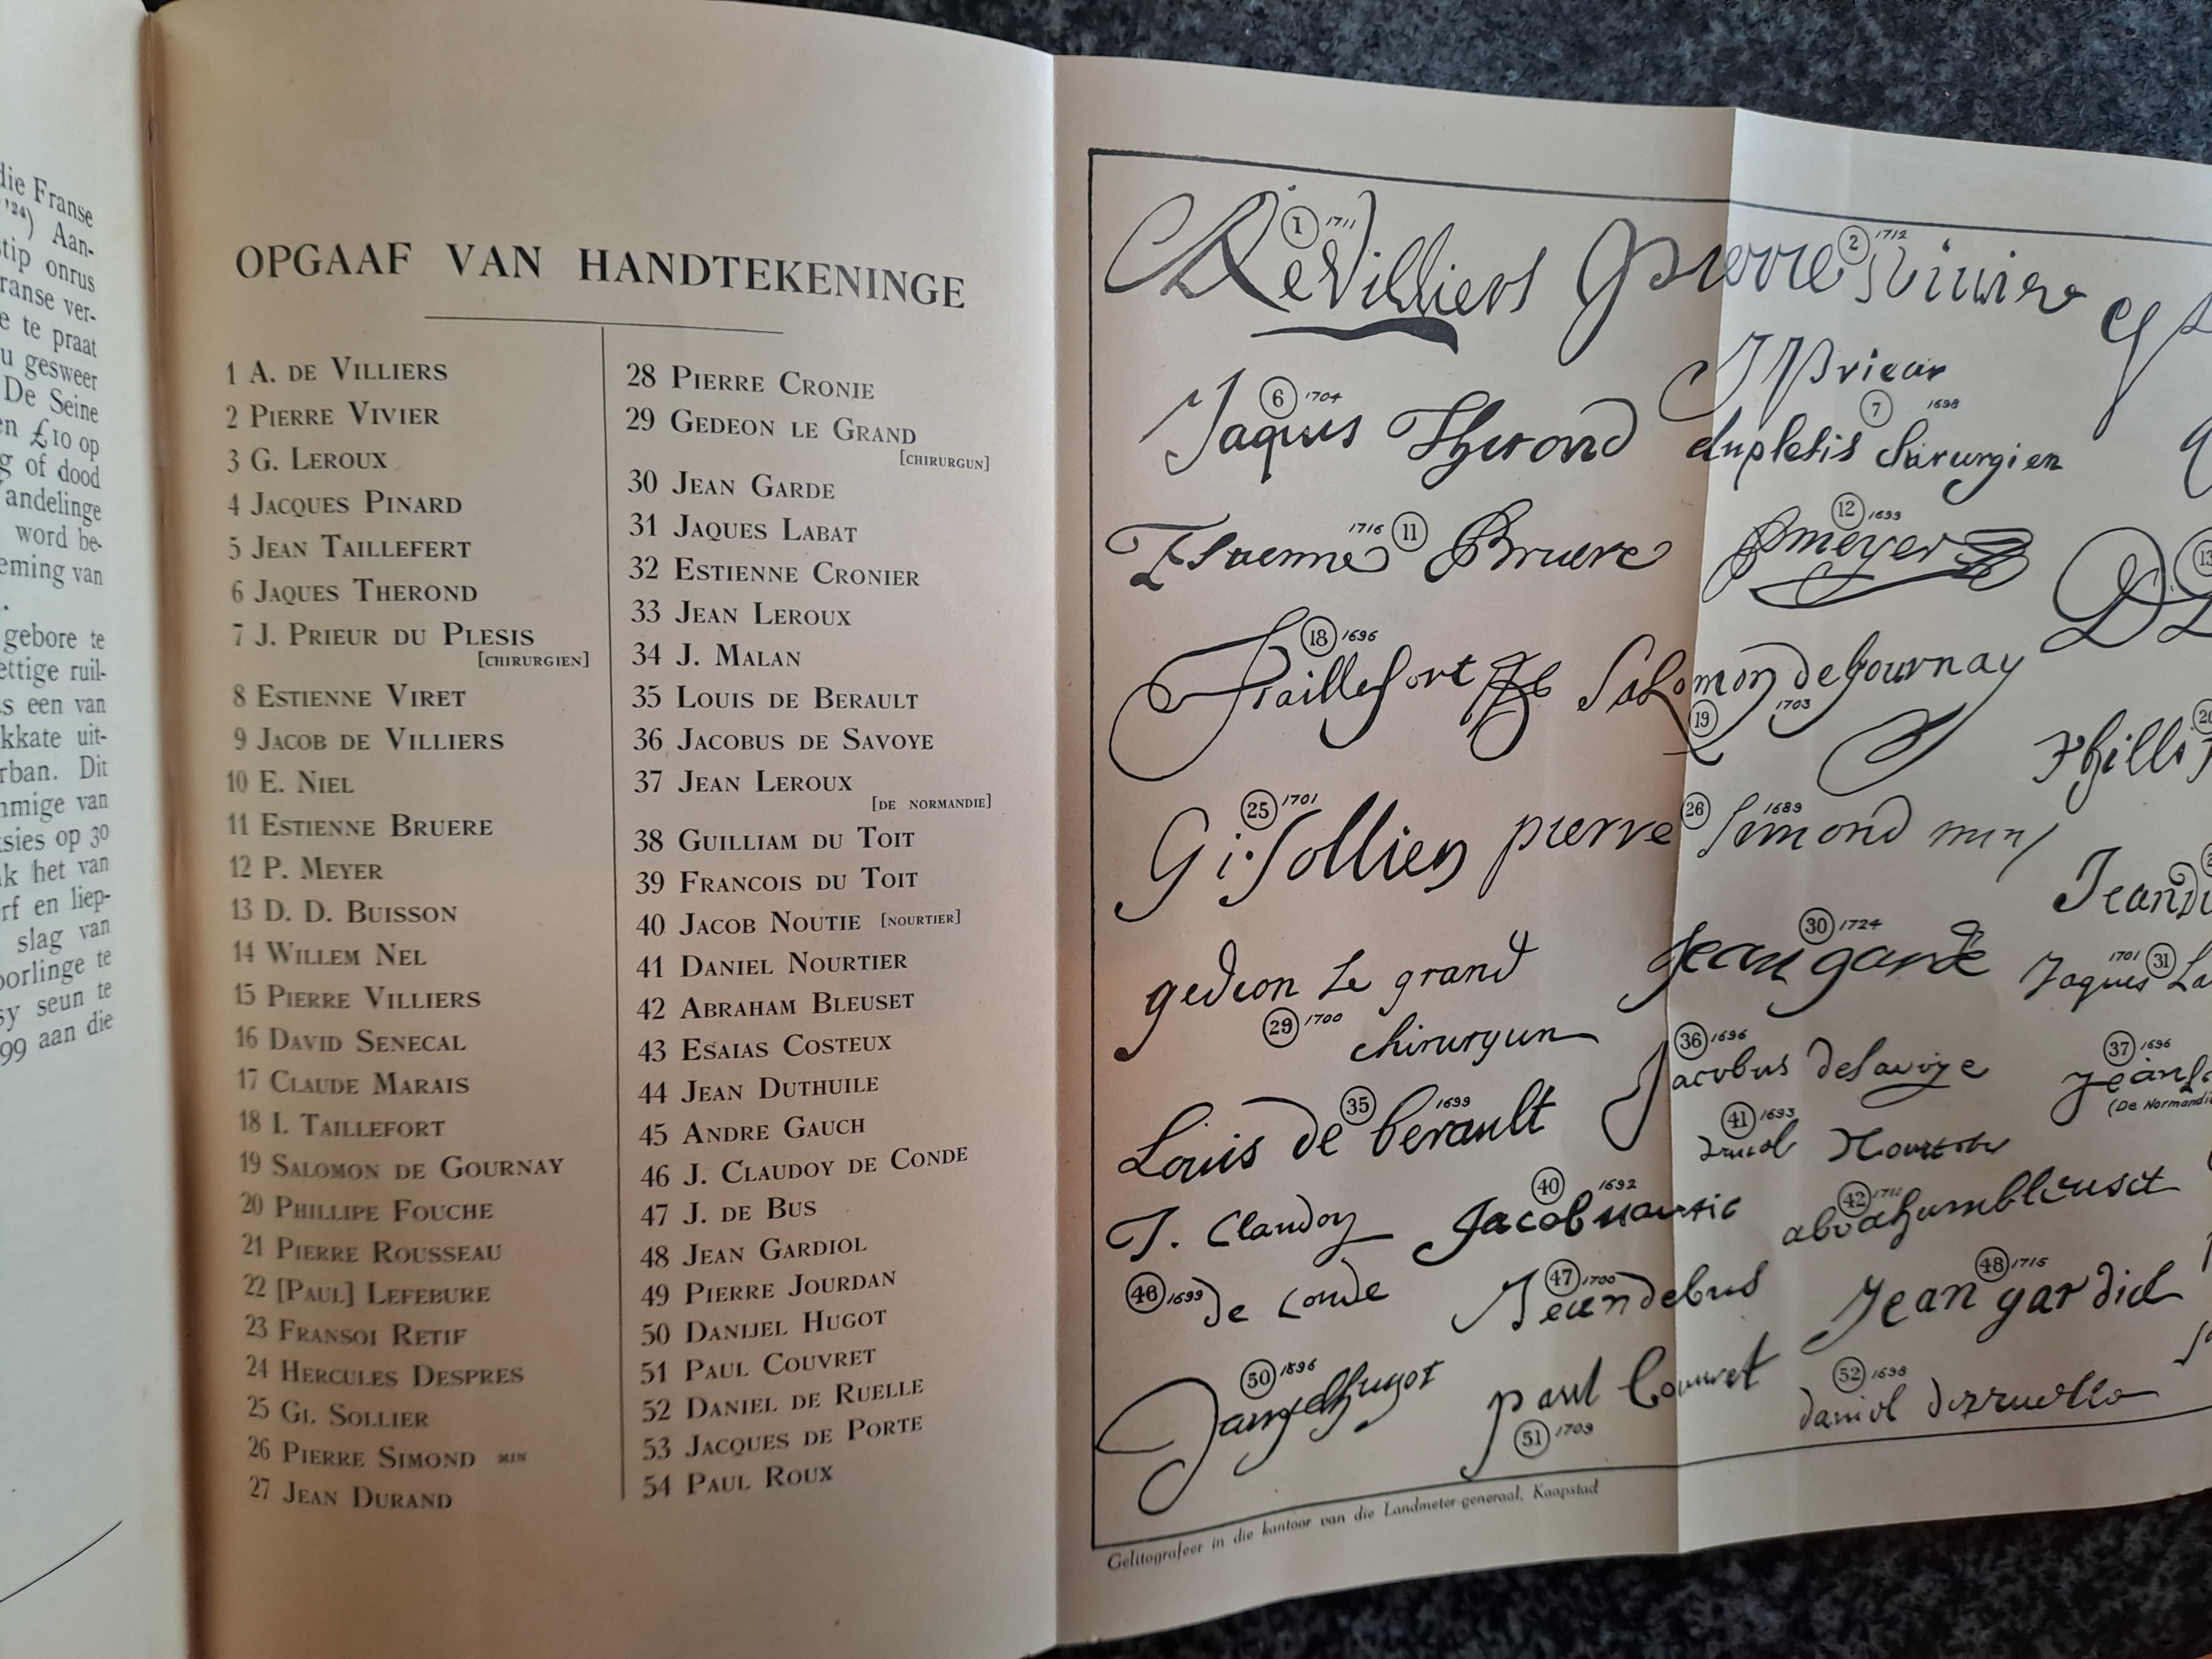 die Franse
'24) Aan-
tip onrus
ranse ver-
e te praat
u gesweer
De Seine
en £10 op
g of dood
andelinge
word be-
eming van
gebore te
ettige ruil-
s een van
kkate uit-
rban. Dit
mmige van
ksies op 30
ak het van
rf en liep-
slag van
oorlinge te
sy seun te
99 aan die
OPGAAF VAN HANDTEKENINGE
1 A. DE VILLIERS
2 PIERRE VIVIER
3 G. LEROUX
4 JACQUES PINARD
5 JEAN TAILLEFERT
6 JAQUES THEROND
7 J. PRIEUR DU PLESIS
[CHIRURGIEN]
8 ESTIENNE VIRET
9 JACOB DE VILLIERS
10 E. NIEL
11 ESTIENNE BRUERE
12 P. MEYER
13 D. D. BUISSON
14 WILLEM NEL
15 PIERRE VILLIERS
16 DAVID SENECAL
17 CLAUDE MARAIS
18 I. TAILLEFORT
19 SALOMON DE GOURNAY
20 PHILLIPE FOUCHE
21 PIERRE ROUSSEAU
22 [PAUL] LEFEBURE
23 FRANSOI RETIF
24 HERCULES DESPRES
25 GI. SOLLIER
26 PIERRE SIMOND MIN
27 JEAN DURAND
28 PIERRE CRONIE
29 GEDEON LE GRAND
[CHIRURGUN]
30 JEAN GARDE
31 JAQUES LABAT
32 ESTIENNE CRONIER
33 JEAN LEROUX
34 J. MALAN
35 LOUIS DE BERAULT
36 JACOBUS DE SAVOYE
37 JEAN LEROUX
[DE NORMANDIE]
38 GUILLIAM DU TOIT
39 FRANCOIS DU TOIT
40 JACOB NOUTIE [NOURTIER]
41 DANIEL NOURTIER
42 ABRAHAM BLEUSET
43 ESAIAS COSTEUX
44 JEAN DUTHUILE
45 ANDRE GAUCH
46 J. CLAUDOY DE CONDE
47 J. DE BUS
48 JEAN GARDIOL
49 PIERRE JOURDAN
50 DANIJEL HUGOT
51 PAUL COUVRET
52 DANIEL DE RUELLE
53 JACQUES DE PORTE
54 PAUL ROUX
1 1711 2 1712
DeVilliers pierre Vivier
6 1704 J Prieur
Jaques Therond 7 1698
duplesis chirurgien
1716 11 12 1699 13
Estienne Bruere PMeyer
18 1696
Taillefort Salomon deGournay
19 1703 20
25 1701 26 1689
Gi. Sollier pierre Simond min
30 1724
gedeon Le grand Jean garde 1701 31
29 1700 Jaques La
chirurgun
36 1696 37 1696
35 1699 Jacobus deSavoye
Louis de berault 41 1693 (De Normandi
40 1692 42 1711
J. Claudoy Jacob noutie abrahambleuset
46 1699 de Conde 47 1700 48 1715
Jeandebus Jean gardiol
50 1696 52 1698
Danijelhugot paul Couvret daniel deruelle
51 1709
Gelitografeer in die kantoor van die Landmeter-generaal, Kaapstad